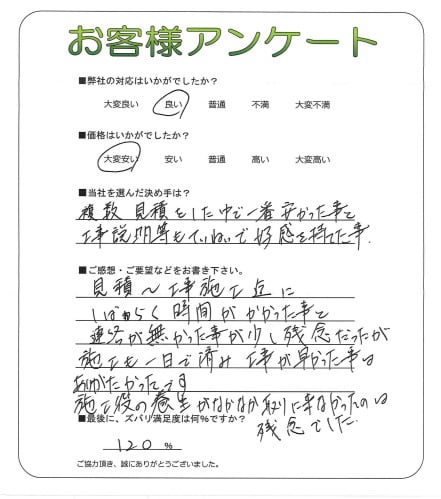 お客様アンケート
■弊社の対応はいかがでしたか？
大変良い 良い 普通 不満 大変不満
■価格はいかがでしたか？
大変安い 安い 普通 高い 大変高い
■当社を選んだ決め手は？
複数見積をした中で一番安かった事と
工事説明等もていねいで好感を持てた事.
■ご感想・ご要望などをお書き下さい。
見積～工事施工迄に
しばらく時間がかかった事と
連絡が無かった事が少し残念だったが
施工も一日で済み工事が早かった事は
ありがたかったです
施工後の養生がなかなか取りに来なかったのは
残念でした.
■最後に、ズバリ満足度は何％ですか？
120 ％
ご協力頂き、誠にありがとうございました。